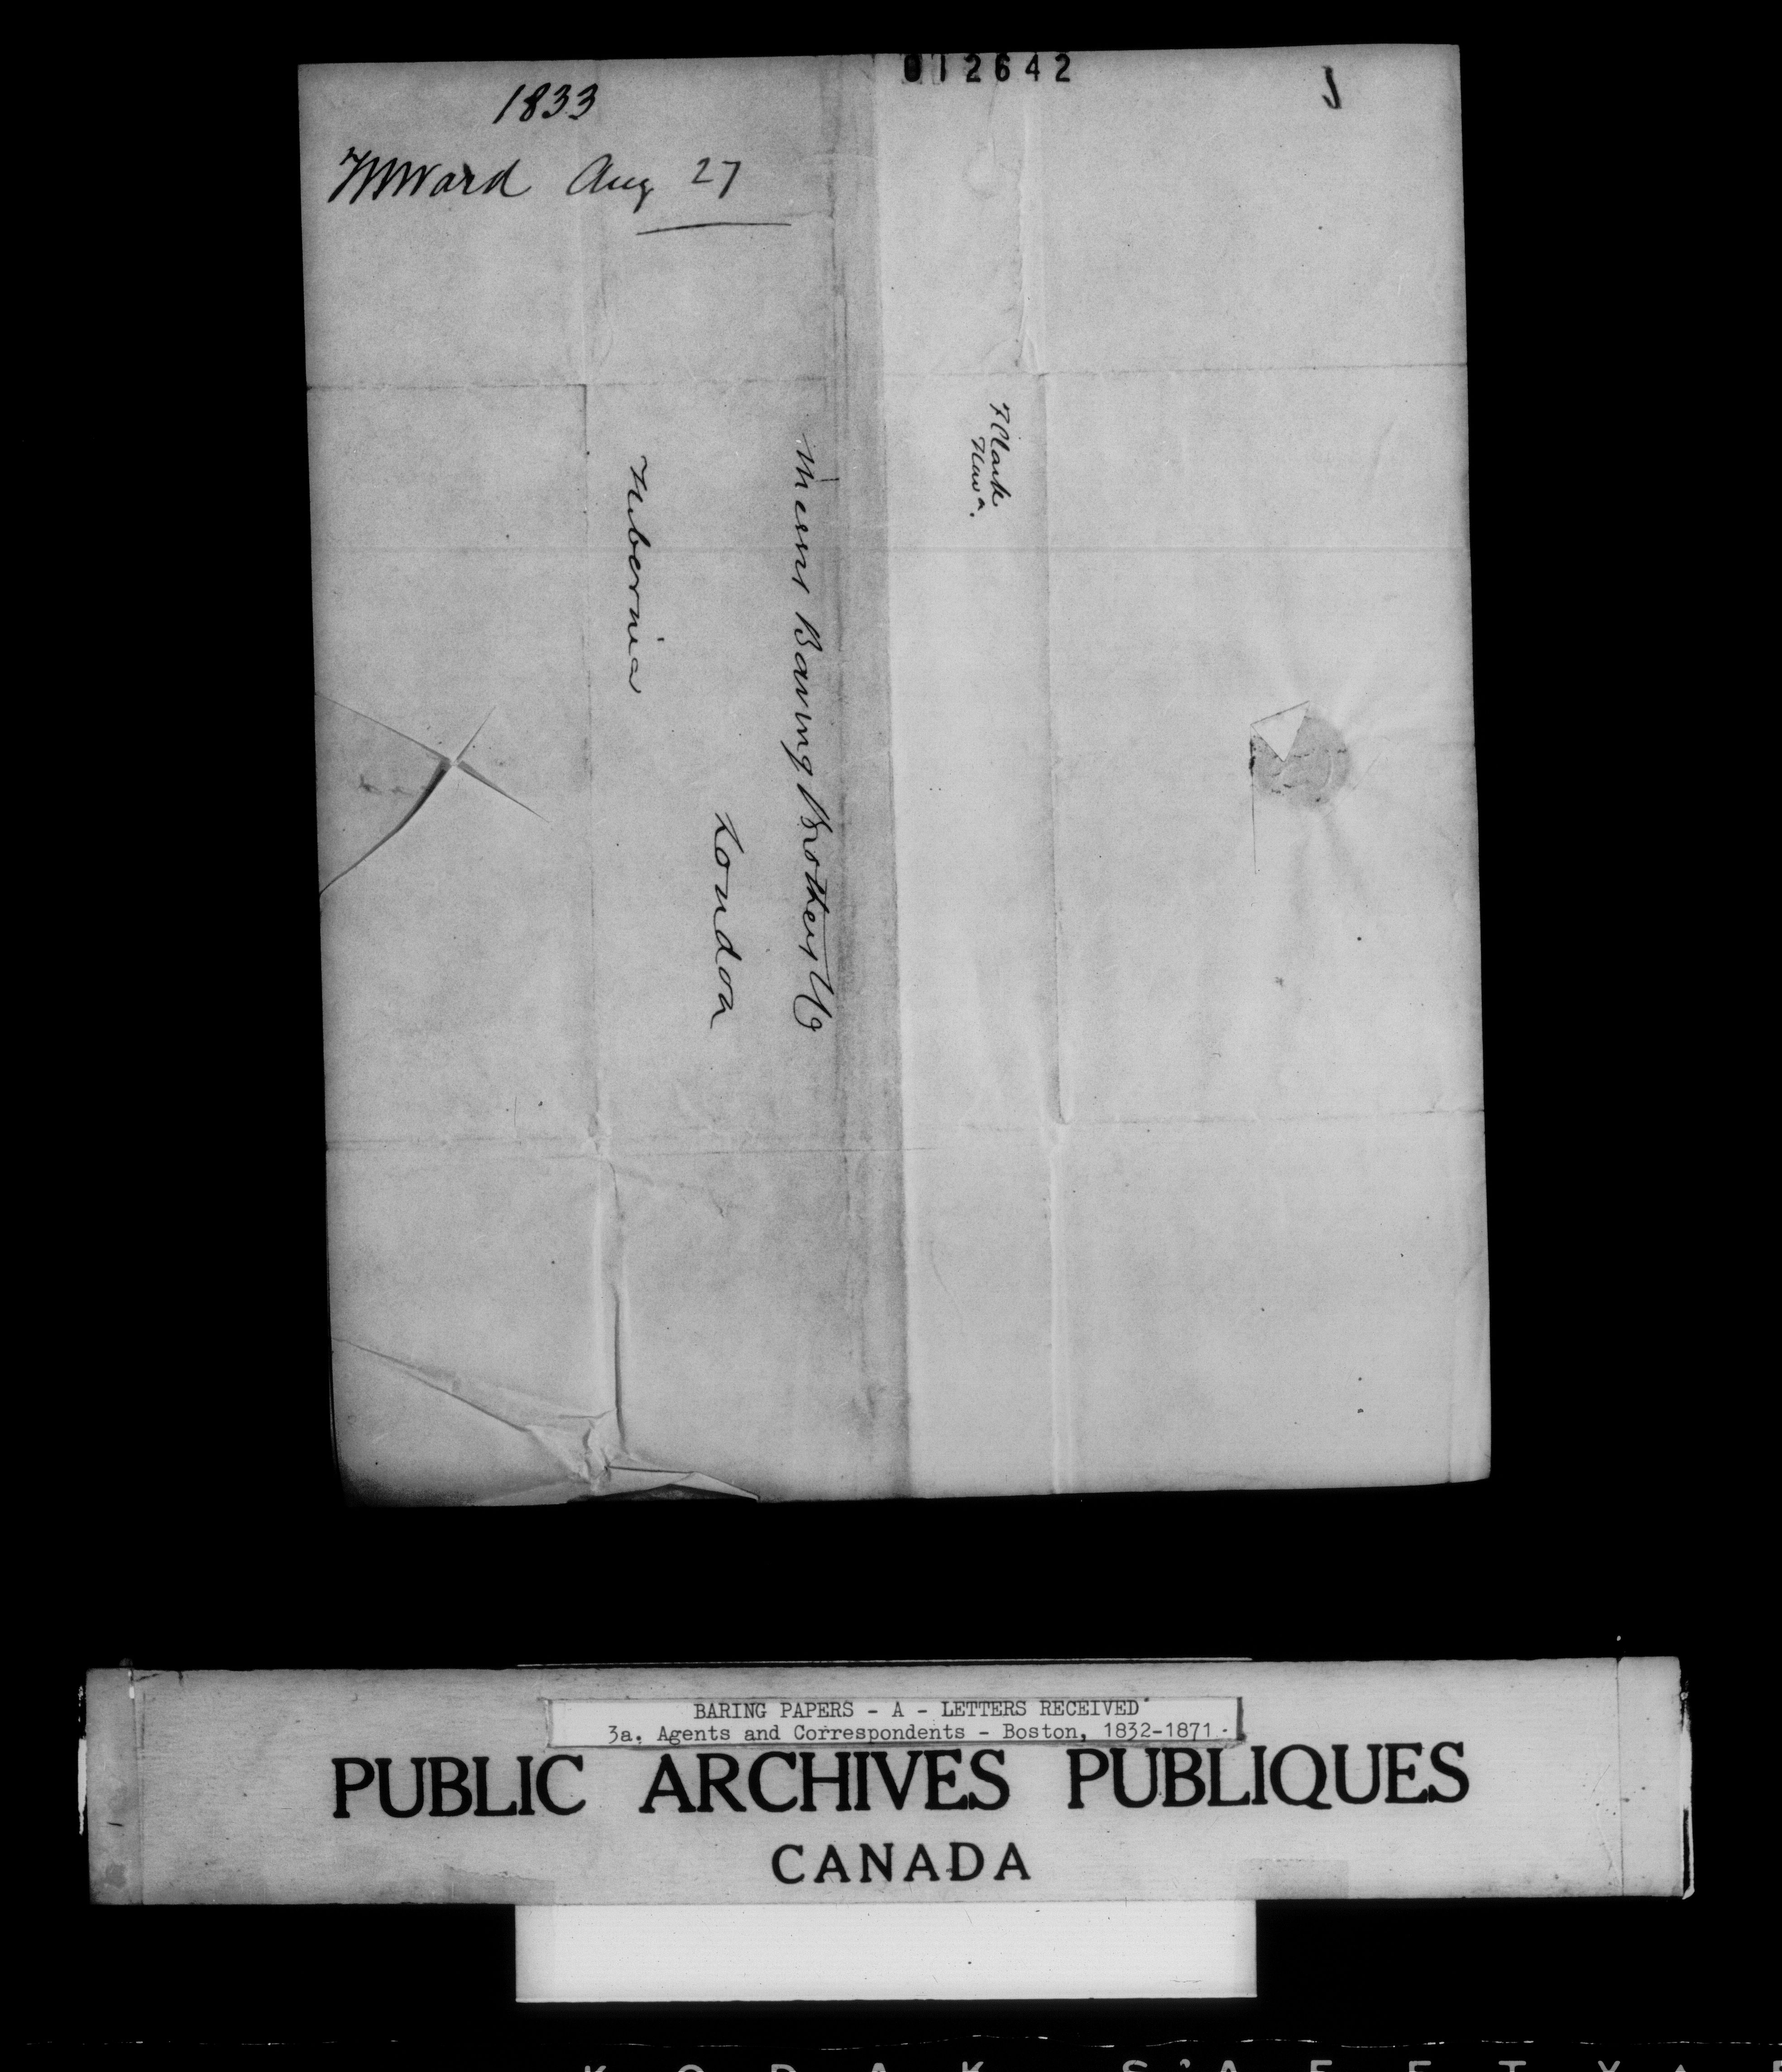 012642
1833
TWWard Aug 27
Messrs Baring Brothers & Co
London
Hibernia
BARING PAPERS - A - LETTERS RECEIVED
3a. Agents and Correspondents - Boston, 1832-1871.
PUBLIC ARCHIVES PUBLIQUES
CANADA
KODAK S'AFETY